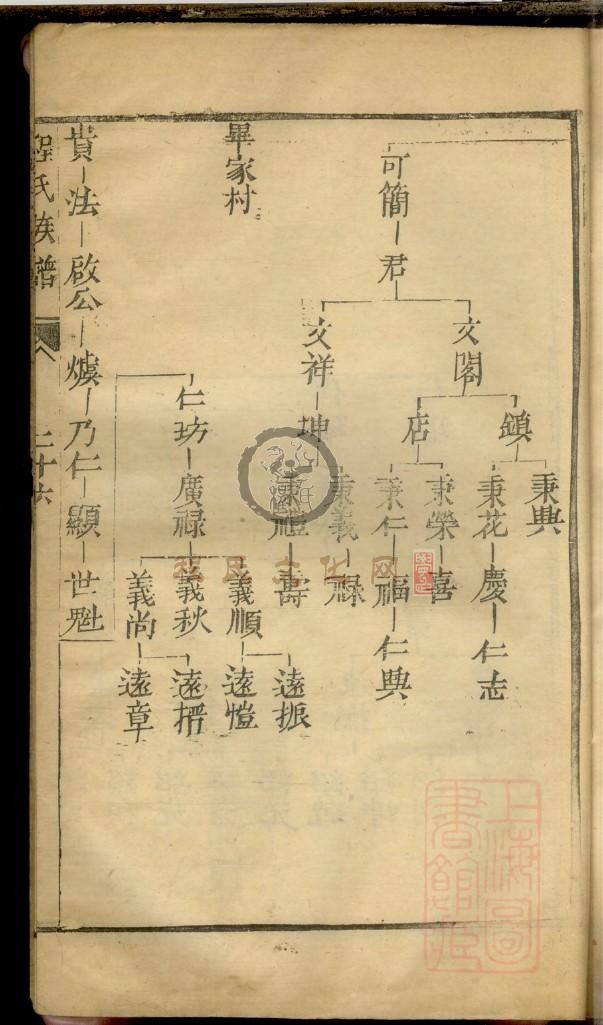 可簡 君
文閣
鎮
秉典
秉花 慶 仁志
店
秉榮 喜
秉仁 福 仁典
文祥 坤
秉義 祿
秉禮 壽
仁坊 廣祿
義順
遠振
遠愷
義秋
義尚
遠搢
遠章
畢家村
貴 法 啟公 爊 乃仁 顯 世魁
程氏族譜
二十六
移民文化网
上海圖書館藏